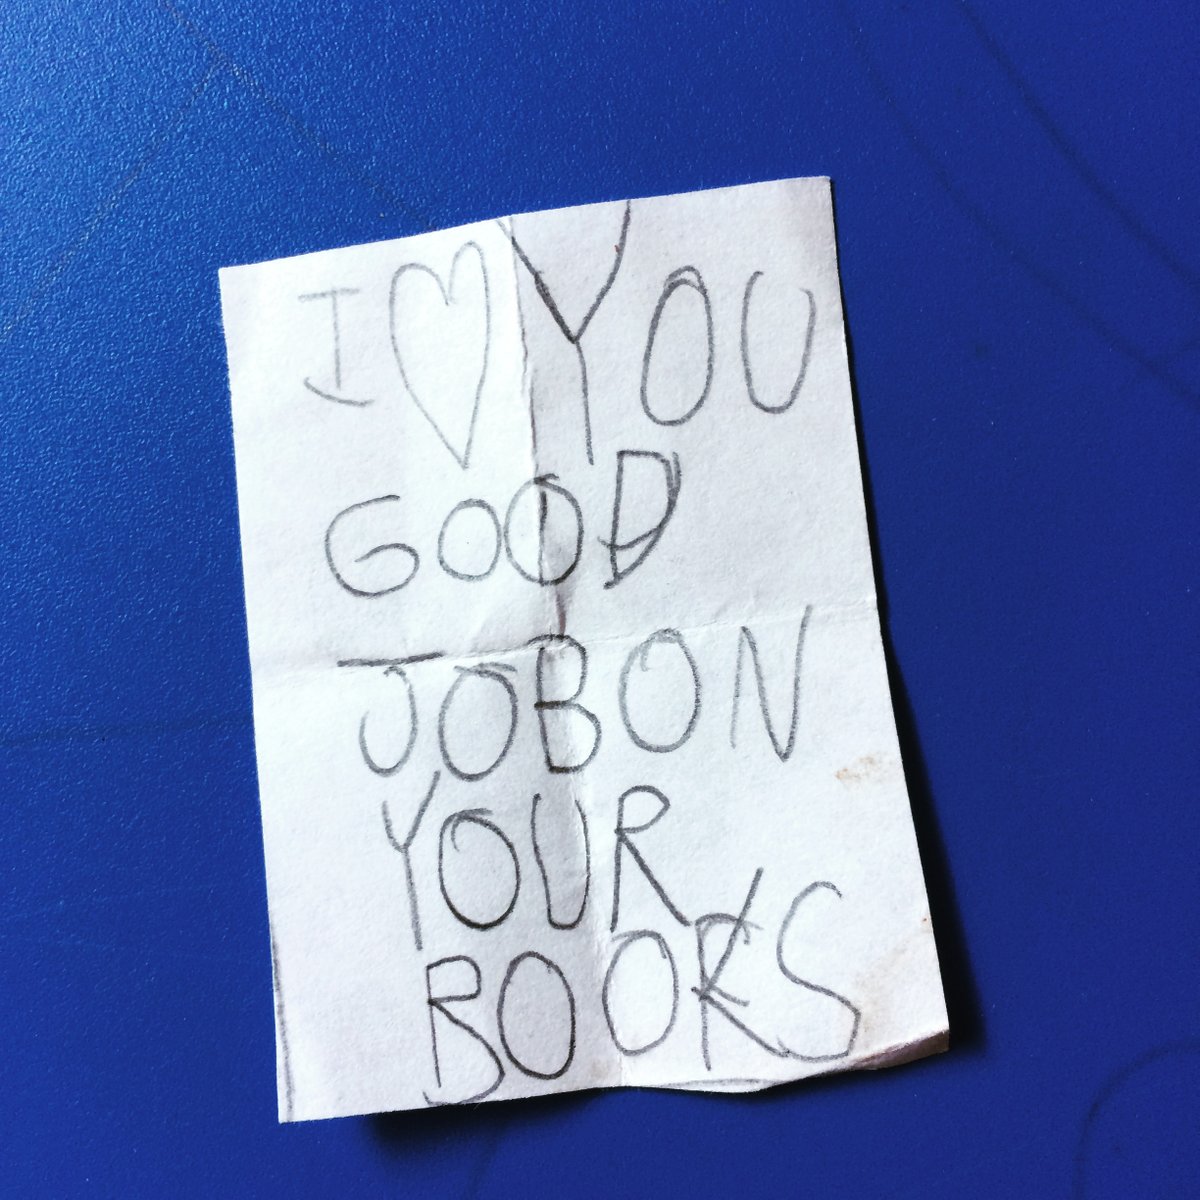 I ♡ YOU
GOOD
JOB ON
YOUR
BOOKS